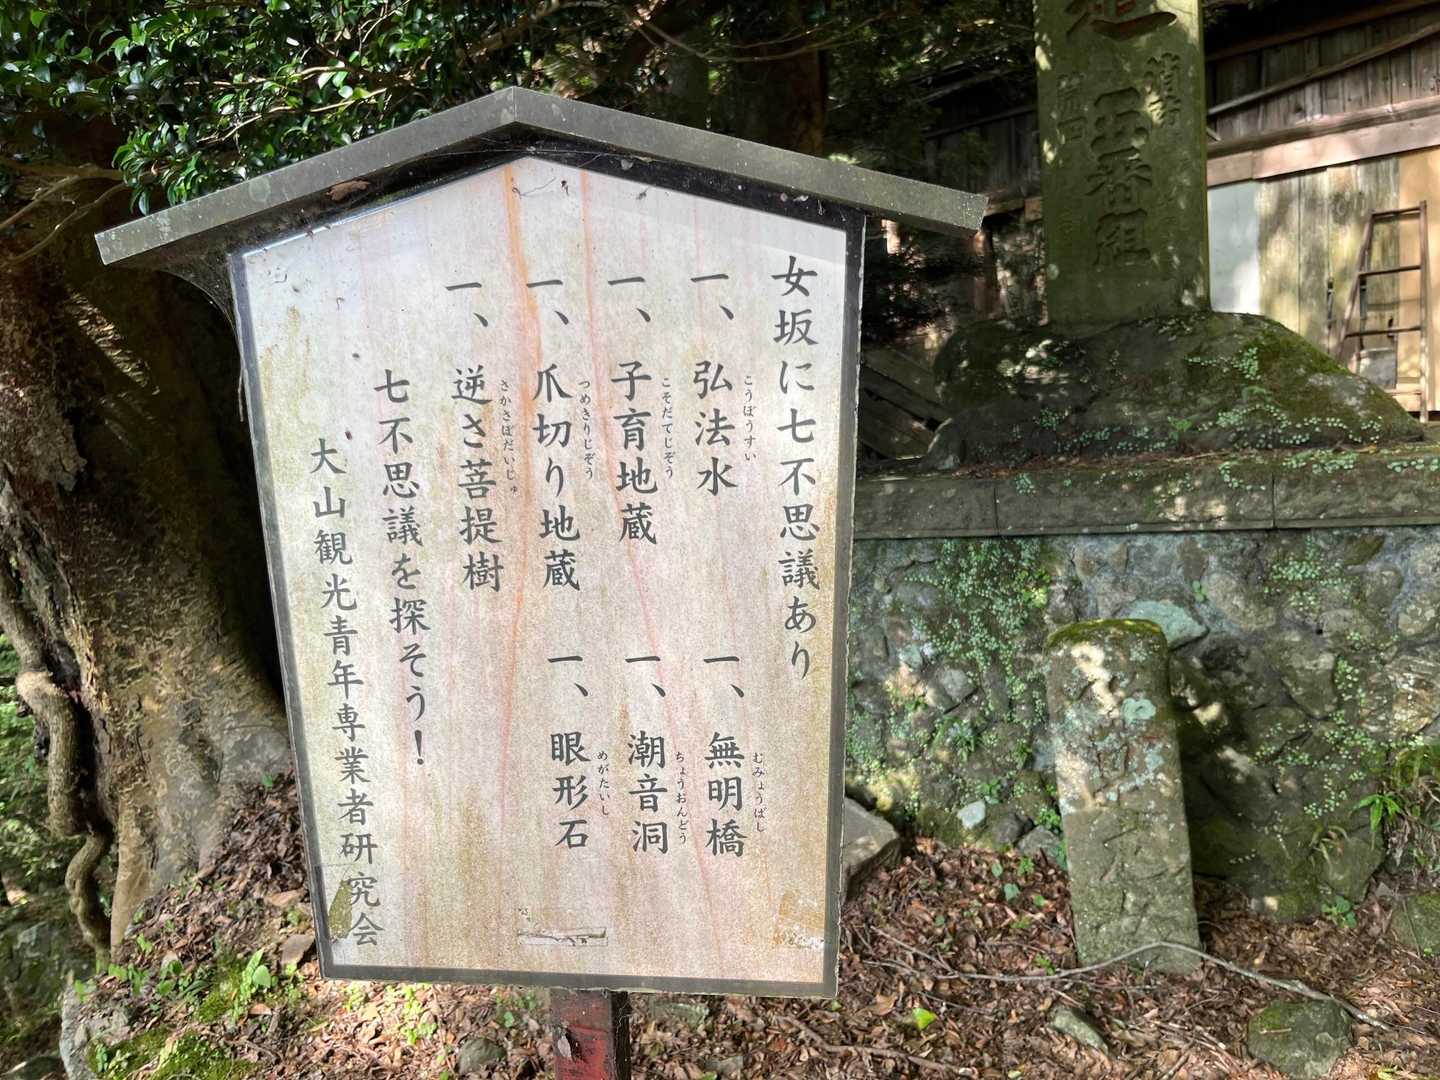 女坂に七不思議あり
一、弘法水
こうぼうすい
一、無明橋
むみょうばし
一、子育地蔵
こそだてじぞう
一、潮音洞
ちょうおんどう
一、爪切り地蔵
つめきりじぞう
一、眼形石
めがたいし
一、逆さ菩提樹
さかさぼだいじゅ
七不思議を探そう！
大山観光青年専業者研究会
五番組